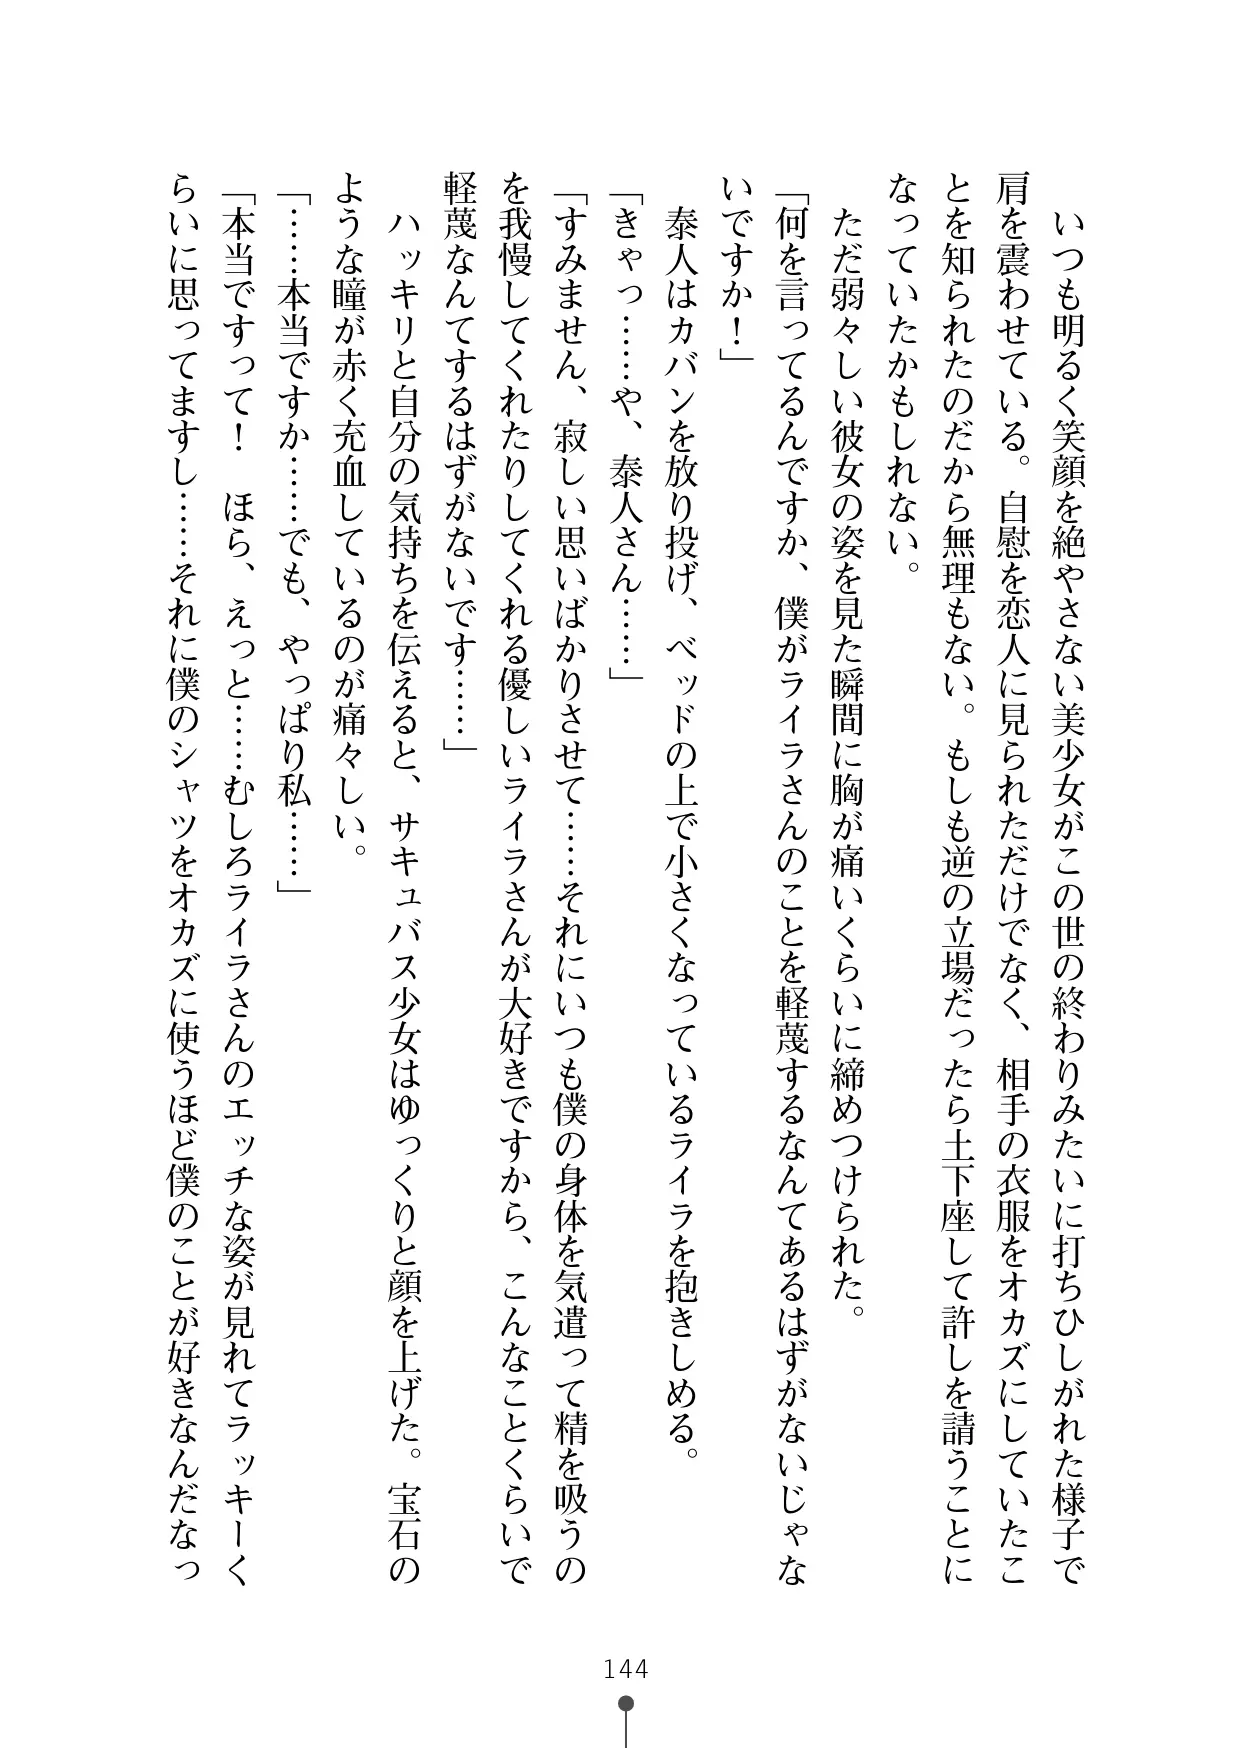 いつも明るく笑顔を絶やさない美少女がこの世の終わりみたいに打ちひしがれた様子で
肩を震わせている。自慰を恋人に見られただけでなく、相手の衣服をオカズにしていたこ
とを知られたのだから無理もない。もしも逆の立場だったら土下座して許しを請うことに
なっていたかもしれない。
　ただ弱々しい彼女の姿を見た瞬間に胸が痛いくらいに締めつけられた。
「何を言ってるんですか、僕がライラさんのことを軽蔑するなんてあるはずがないじゃな
いですか！」
　泰人はカバンを放り投げ、ベッドの上で小さくなっているライラを抱きしめる。
「きゃっ……や、泰人さん……」
「すみません、寂しい思いばかりさせて……それにいつも僕の身体を気遣って精を吸うの
を我慢してくれたりしてくれる優しいライラさんが大好きですから、こんなことくらいで
軽蔑なんてするはずがないです……」
　ハッキリと自分の気持ちを伝えると、サキュバス少女はゆっくりと顔を上げた。宝石の
ような瞳が赤く充血しているのが痛々しい。
「……本当ですか……でも、やっぱり私……」
「本当ですって！　ほら、えっと……むしろライラさんのエッチな姿が見れてラッキーく
らいに思ってますし……それに僕のシャツをオカズに使うほど僕のことが好きなんだなっ
144